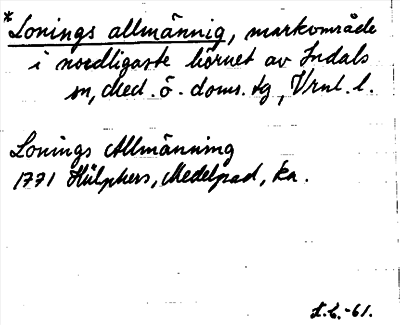 *Lonings allmännig, markområde
i nordligaste hörnet av Indals
sn, Med. ö. doms. tg, Vrnl. l.
Lonings Allmänning
1771 Hülphers, Medelpad, ka.
L.L.-61.